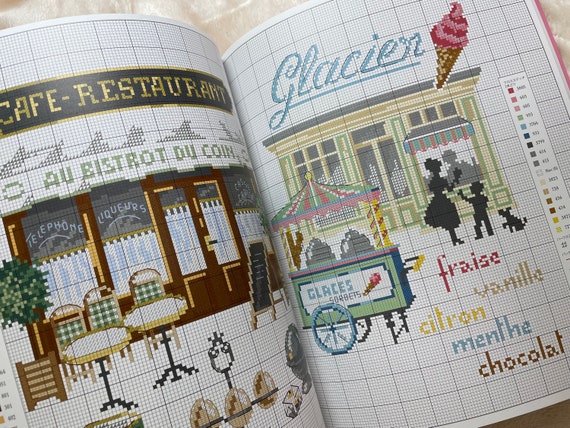 CAFE-RESTAURANT
AU BISTROT DU COIN
TELEPHONE
LIQUEURS
Glacier
GLACES
SORBETS
fraise
vanille
citron
menthe
chocolat